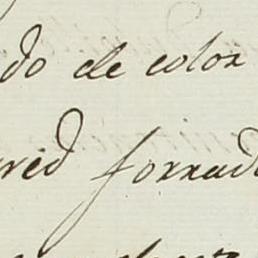 do de color
red forrad